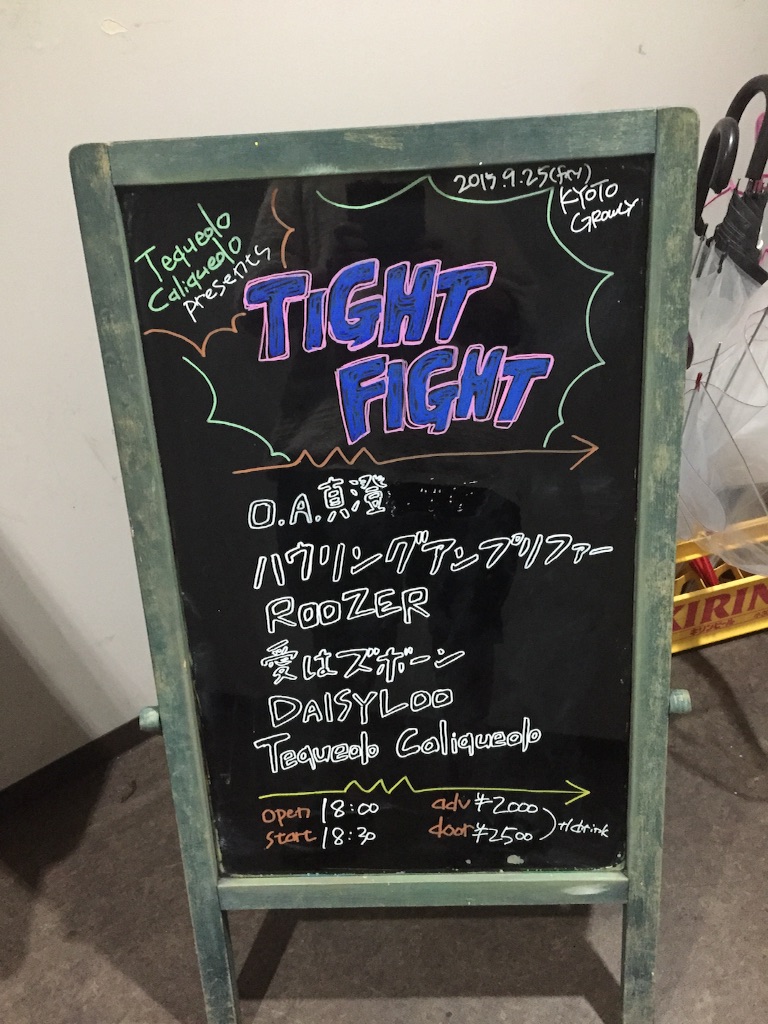 2015.9.25(fri)
KYOTO
GROWLY
Tequeolo
Caliqueolo
presents
TIGHT
FIGHT
O.A.真澄
ハウリングアンプリファー
ROOZER
愛はズボーン
DAISYLOO
Tequeolo Caliqueolo
open 18:00 adv ¥2000
start 18:30 door ¥2500 +1drink
KIRIN